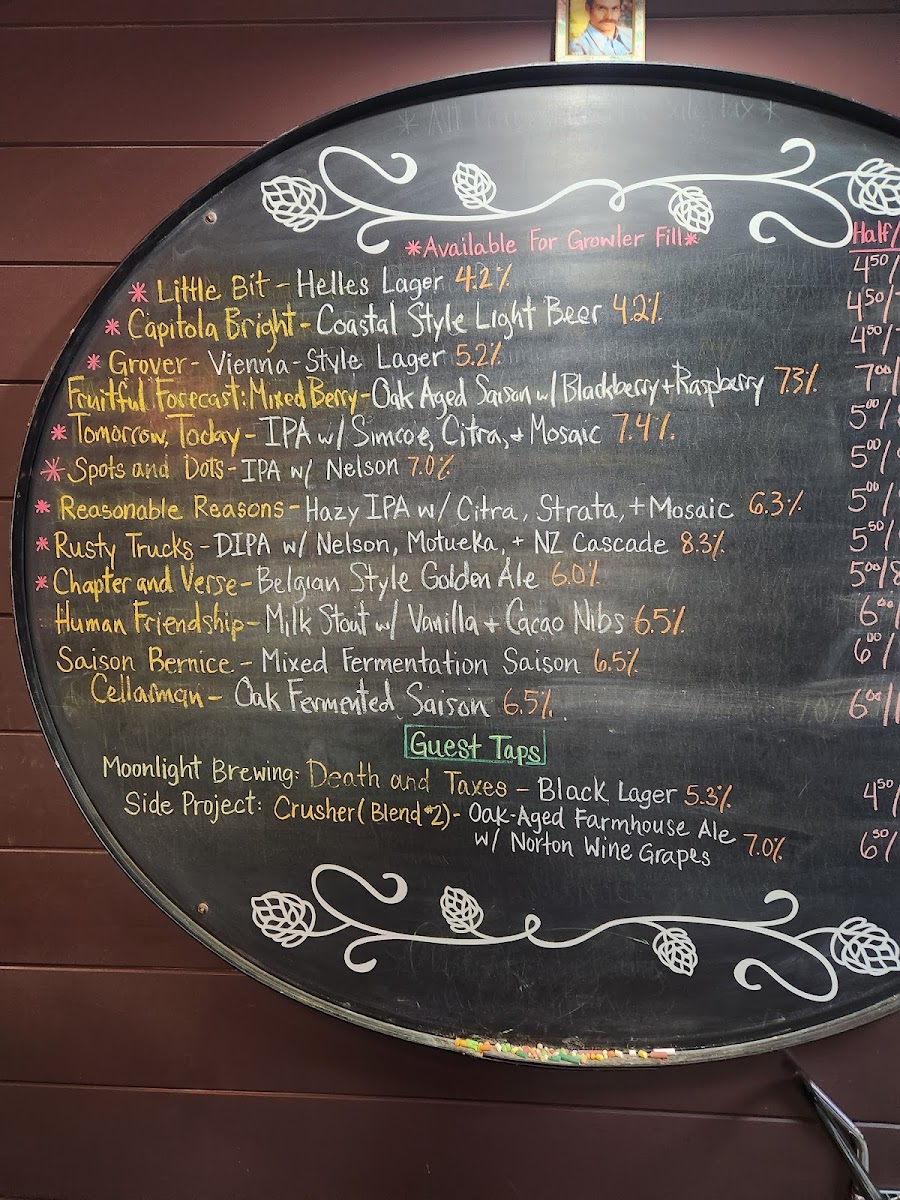 *Available For Growler Fill*
Half/
* Little Bit - Helles Lager 4.2% 4⁵⁰/
* Capitola Bright - Coastal Style Light Beer 4.2% 4⁵⁰/
* Grover - Vienna-Style Lager 5.2% 4⁵⁰/
Fruitful Forecast: Mixed Berry - Oak Aged Saison w/ Blackberry + Raspberry 7.3% 7⁰⁰/
* Tomorrow, Today - IPA w/ Simcoe, Citra, + Mosaic 7.4% 5⁰⁰/
* Spots and Dots - IPA w/ Nelson 7.0% 5⁰⁰/
* Reasonable Reasons - Hazy IPA w/ Citra, Strata, + Mosaic 6.3% 5⁰⁰/
* Rusty Trucks - DIPA w/ Nelson, Motueka, + NZ Cascade 8.3% 5⁵⁰/
* Chapter and Verse - Belgian Style Golden Ale 6.0% 5⁰⁰/8
Human Friendship - Milk Stout w/ Vanilla + Cacao Nibs 6.5% 6⁰⁰/
Saison Bernice - Mixed Fermentation Saison 6.5% 6⁰⁰/
Cellarman - Oak Fermented Saison 6.5% 6⁰⁰/
Guest Taps
Moonlight Brewing: Death and Taxes - Black Lager 5.3% 4⁵⁰/
Side Project: Crusher (Blend #2) - Oak-Aged Farmhouse Ale
w/ Norton Wine Grapes 7.0% 6⁵⁰/